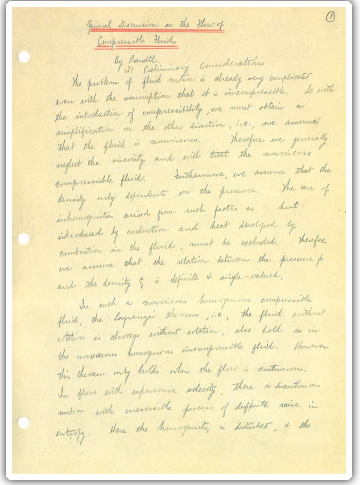 ①
General Discussion on the Flow of
Compressible Fluid
By Prandtl
§1 Preliminary Considerations
The problem of fluid motion is already very complicated
even with the assumption that it is incompressible. So with
the introduction of compressibility, we must obtain a
simplification on the other direction, i.e., we assume
that the fluid is nonviscous. Therefore we generally
neglect the viscosity and will treat the nonviscous
compressible fluid. Furthermore, we assume that the
density only dependents on the pressure. The case of
inhomogenities arised from such factors as heat
introduced by conduction and heat developed by
combustion in the fluid, must be excluded. Therefore
we assume that the relation between the pressure p
and the density ρ is definite & single-valued.
In such a nonviscous homogenous compressible
fluid, the Lagrange's theorem, i.e., the fluid without
rotation is always without rotation, also hold as in
the nonviscous homogenous incompressible fluid. However
this theorem only holds when the flow is continuous.
In flows with supersonic velocity, there is discontinuous
motion with irreversible process of deffinite raise in
entropy. Here the homogeneity is disturbed, & the